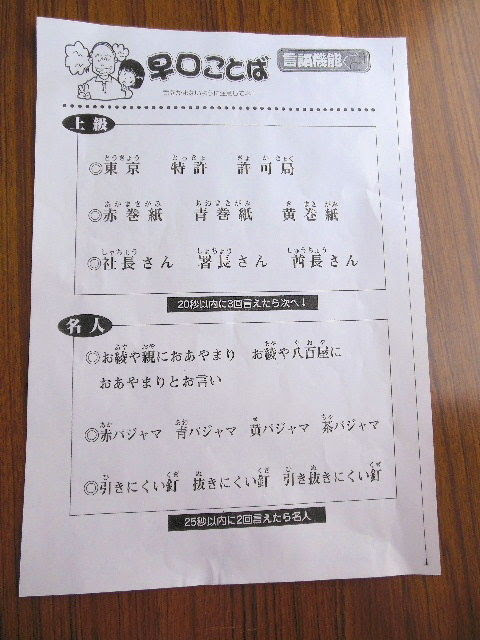 早口ことば
言語機能
上級
◎東京 特許 許可局
◎赤巻紙 青巻紙 黄巻紙
◎社長さん 署長さん 酋長さん
20秒以内に3回言えたら次へ!
名人
◎お綾や親におあやまり お綾や八百屋に
おあやまりとお言い
◎赤パジャマ 青パジャマ 黄パジャマ 茶パジャマ
◎引きにくい釘 抜きにくい釘 引き抜きにくい釘
25秒以内に2回言えたら名人